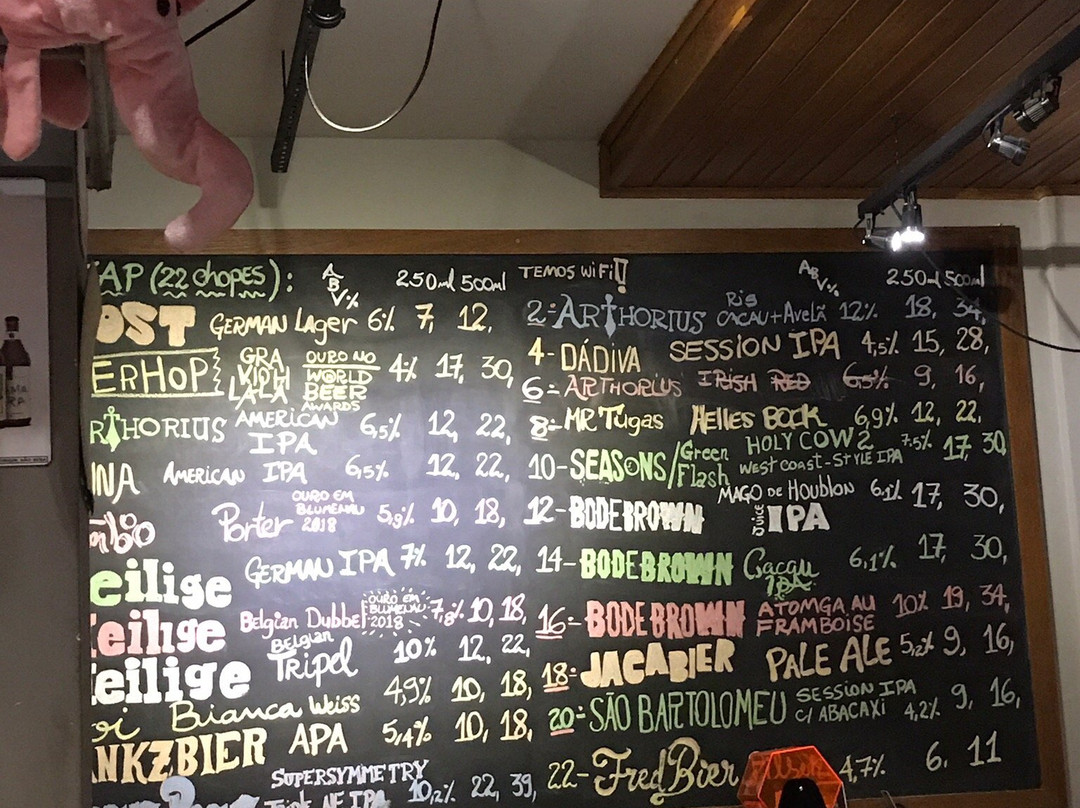 AP (22 chopes): ABV% 250ml 500ml
OST GERMAN Lager 6% 7, 12,
ERHOP GRA VIOLA LALA OURO NO WORLD BEER AWARDS 4% 17, 30,
RTHORIUS AMERICAN IPA 6,5% 12, 22,
NA AMERICAN IPA 6,5% 12, 22,
Porter OURO EM BLUMENAU 2018 5,9% 10, 18,
eilige GERMAN IPA 7% 12, 22,
eilige Belgian Dubbel OURO EM BLUMENAU 2018 7,8% 10, 18,
eilige BELGIAN Tripel 10% 12, 22,
oi Bianca Weiss 4,9% 10, 18,
NKZBIER APA 5,4% 10, 18,
SUPERSYMMETRY NE IPA 10,2% 22, 39,
TEMOS WiFi! ABV% 250ml 500ml
2- ARTHORIUS RIS CACAU + Avelã 12% 18, 34,
4- DÁDIVA SESSION IPA 4,5% 15, 28,
6- ARTHORIUS IRISH RED 6,5% 9, 16,
8- MR Tugas HELLES BOCK 6,9% 12, 22,
10- SEASONS/Green Flash HOLY COW 2 WEST COAST-STYLE IPA 7,5% 17, 30,
12- BODEBROWN MAGO DE HOUBLON JUICE IPA 6,1% 17, 30,
14- BODEBROWN Cacau IPA 6,1% 17, 30,
16- BODEBROWN ATOMGA AU FRAMBOISE 10% 19, 34,
18- JACABIER PALE ALE 5,2% 9, 16,
20- SÃO BARTOLOMEU SESSION IPA C/ ABACAXI 4,2% 9, 16,
22- FredBier 4,7% 6, 11